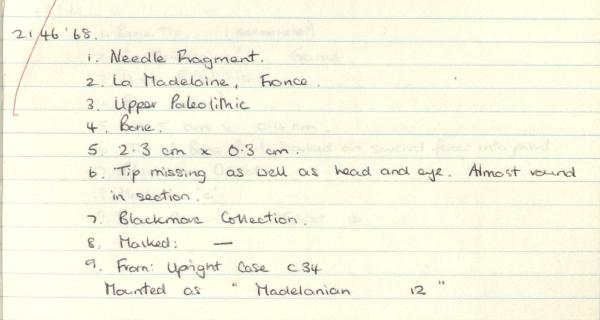 21 46'68.
1. Needle Fragment.
2. La Madelaine, France.
3. Upper Paleolithic
4. Bone.
5. 2.3 cm x 0.3 cm.
6. Tip missing as well as head and eye. Almost round
in section.
7. Blackmore Collection.
8. Marked: —
9. From: Upright Case C34
Mounted as "Madelanian 12"